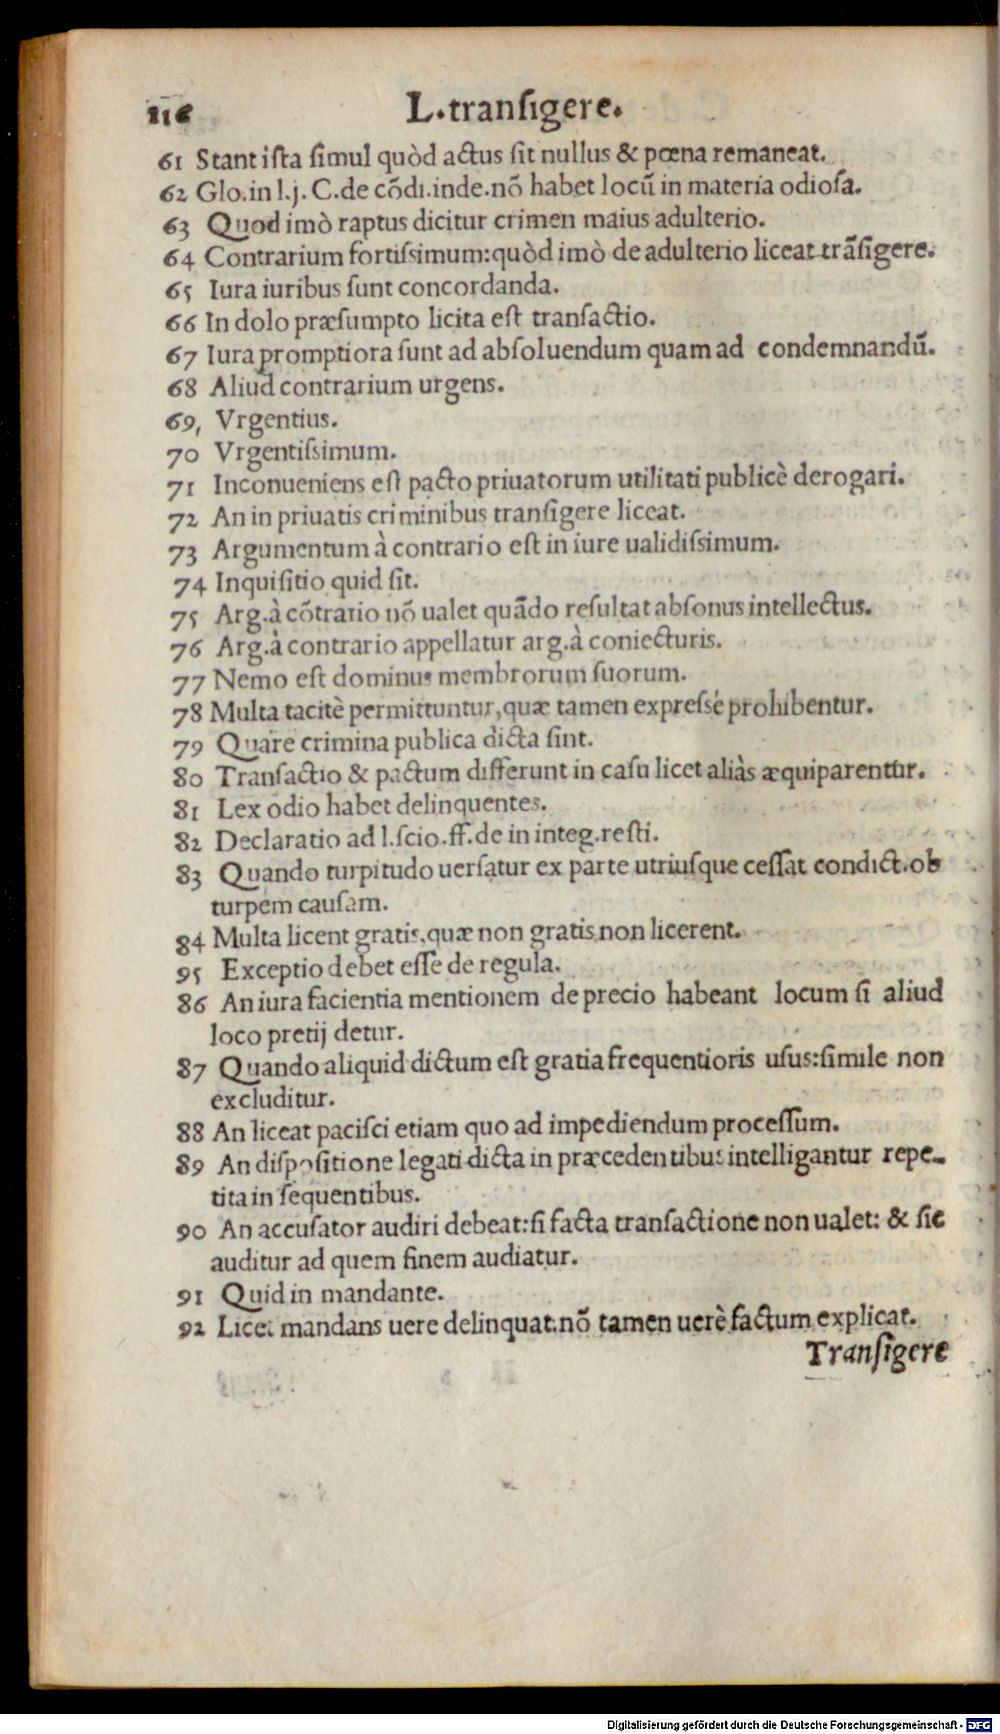 116
L.transigere.
61 Stant ista simul quòd actus sit nullus & pœna remaneat.
62 Glo.in l.j. C.de cõdi.inde.nõ habet locũ in materia odiosa.
63 Quod imò raptus dicitur crimen maius adulterio.
64 Contrarium fortissimum:quòd imò de adulterio liceat trãsigere.
65 Iura iuribus sunt concordanda.
66 In dolo præsumpto licita est transactio.
67 Iura promptiora sunt ad absoluendum quam ad condemnandũ.
68 Aliud contrarium urgens.
69, Vrgentius.
70 Vrgentissimum.
71 Inconueniens est pacto priuatorum utilitati publicè derogari.
72 An in priuatis criminibus transigere liceat.
73 Argumentum à contrario est in iure ualidissimum.
74 Inquisitio quid sit.
75 Arg.à cõtrario nõ ualet quãdo resultat absonus intellectus.
76 Arg.à contrario appellatur arg.à coniecturis.
77 Nemo est dominus membrorum suorum.
78 Multa tacitè permittuntur,quæ tamen expressè prohibentur.
79 Quare crimina publica dicta sint.
80 Transactio & pactum differunt in casu licet aliàs æquiparentur.
81 Lex odio habet delinquentes.
82 Declaratio ad l.scio.ff.de in integ.resti.
83 Quando turpitudo uersatur ex parte utriusque cessat condict.ob
turpem causam.
84 Multa licent gratis,quæ non gratis non licerent.
95 Exceptio debet esse de regula.
86 An iura facientia mentionem de precio habeant locum si aliud
loco pretij detur.
87 Quando aliquid dictum est gratia frequentioris usus:simile non
excluditur.
88 An liceat pacisci etiam quo ad impediendum processum.
89 An dispositione legati dicta in præcedentibus intelligantur repe-
tita in sequentibus.
90 An accusator audiri debeat:si facta transactione non ualet: & sic
auditur ad quem finem audiatur.
91 Quid in mandante.
92 Licet mandans uere delinquat.nõ tamen uerè factum explicat.
Transigere
Digitalisierung gefördert durch die Deutsche Forschungsgemeinschaft - DFG